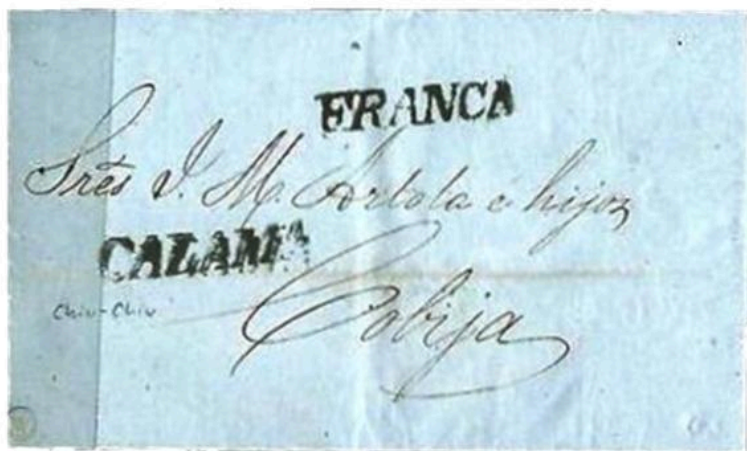 FRANCA
Srēs J. M. Artola e hijos
CALAMA
Chiu-Chiu
Cobija